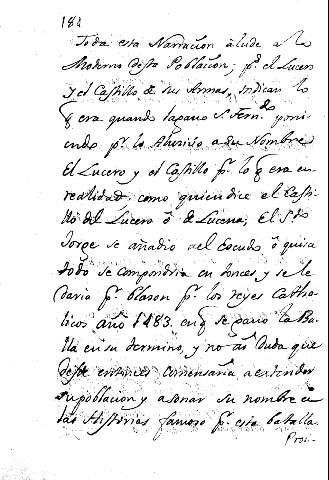 184
Toda esta Narracion alude a lo
Moderno desta Poblacion; pr. el Lucero
y el Castillo de sus Armas, indican lo
q era quando la gano Sn. Ferndo. poni
endo pr. lo Alusivo a su Nombre
El Lucero y el Castillo pr. lo q era en
realidad, como quien dice el Casti
llo del Lucero ò de Lucena; El Sn.
Jorge se añadio a el Escudo ò quiza
todo se compondria en tonces y se le
daria pr. blason pr. los reyes Catho
licos año 1483. en q se dio la Ba
lla en su termino, y no ai Duda que
desde entonces comensaria a entender
su poblacion y a sonar su nombre en
las Historias famoso pr. esta batalla.
Prosi-